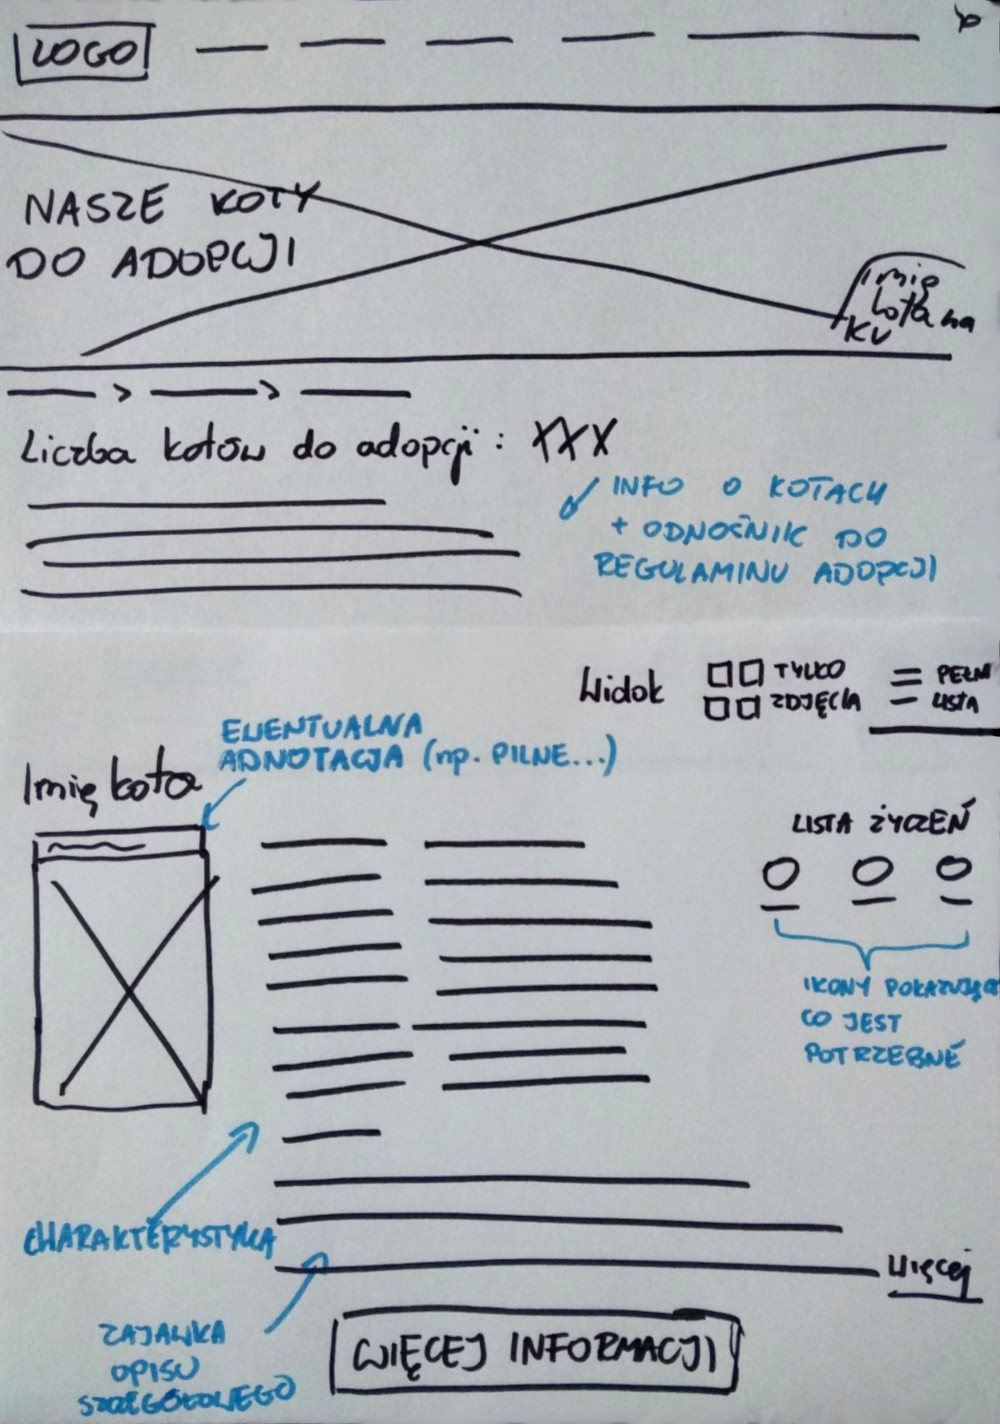 LOGO
NASZE KOTY
DO ADOPCJI
Imię
kota na
KV
Liczba kotów do adopcji : XXX
INFO O KOTACH
+ ODNOŚNIK DO
REGULAMINU ADOPCJI
Widok
TYLKO
ZDJĘCIA
PEŁNA
LISTA
EWENTUALNA
ADNOTACJA (np. PILNE...)
Imię kota
LISTA ŻYCZEŃ
IKONY POKAZUJĄCE
CO JEST
POTRZEBNE
CHARAKTERYSTYKA
Więcej
ZAJAWKA
OPISU
SZCZEGÓŁOWEGO
WIĘCEJ INFORMACJI